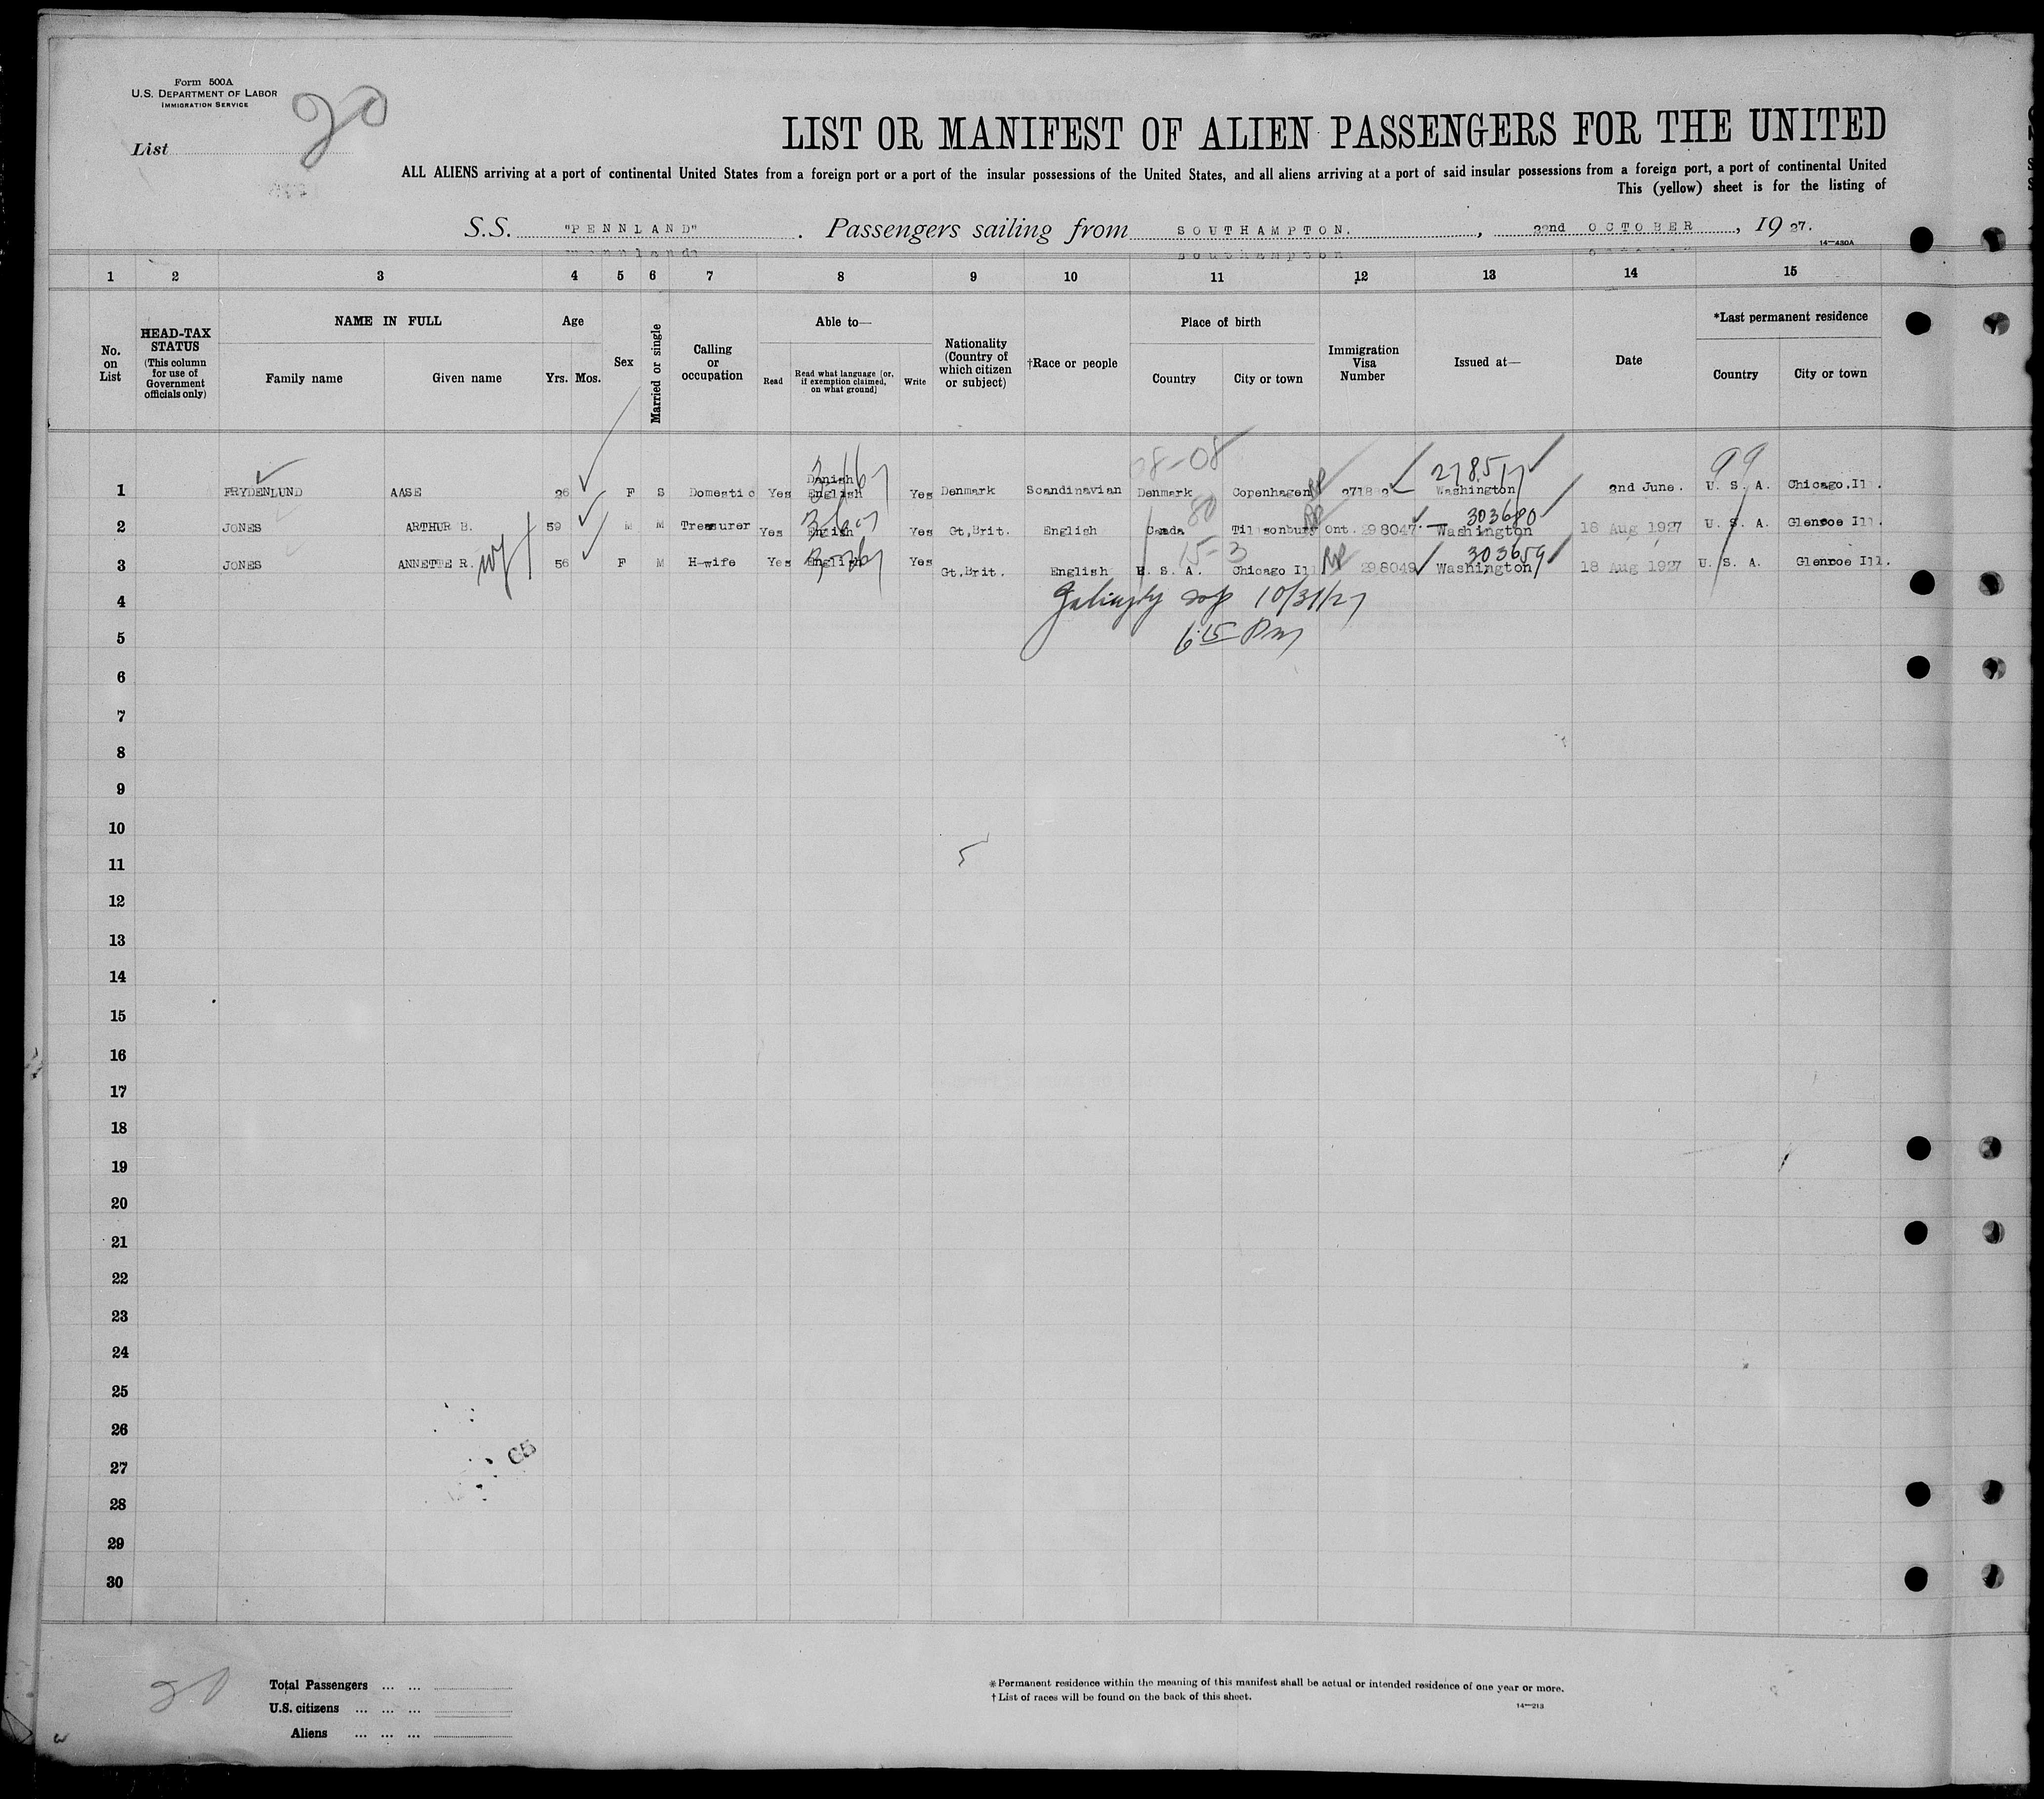 Form 500A
U.S. DEPARTMENT OF LABOR
IMMIGRATION SERVICE
20
List
LIST OR MANIFEST OF ALIEN PASSENGERS FOR THE UNITED
ALL ALIENS arriving at a port of continental United States from a foreign port or a port of the insular possessions of the United States, and all aliens arriving at a port of said insular possessions from a foreign port, a port of continental United
This (yellow) sheet is for the listing of
S.S. "PENNLAND". Passengers sailing from SOUTHAMPTON., 22nd OCTOBER, 1927.
14—430A
1 2 3 4 5 6 7 8 9 10 11 12 13 14 15
No. on List
HEAD-TAX STATUS (This column for use of Government officials only)
NAME IN FULL
Family name Given name
Age
Yrs. Mos.
Sex
Married or single
Calling or occupation
Able to—
Read
Read what language [or, if exemption claimed, on what ground]
Write
Nationality (Country of which citizen or subject)
†Race or people
Place of birth
Country City or town
Immigration Visa Number
Issued at—
Date
*Last permanent residence
Country City or town
08-08 278517 99
1 FRYDENLUND AASE 26 F S Domestic Yes Danish English Yes Denmark Scandinavian Denmark Copenhagen Washington 2nd June. U. S. A. Chicago.Ill.
80 303680
2 JONES ARTHUR B. 59 M M Treasurer Yes Enlish Yes Gt,Brit. English Canda Tillsonbury Ont. 298047 Washington 18 Aug 1927 U. S. A. Glencoe Ill.
15-3 303659
3 JONES ANNETTE R. wf 56 F M H-wife Yes English Yes Gt.Brit. English U. S. A. Chicago Ill 298049 Washington 18 Aug 1927 U. S. A. Glencoe Ill.
4 10/31/27
5 6:15 Pm
6
7
8
9
10
11
12
13
14
15
16
17
18
19
20
21
22
23
24
25
26
27
28
29
30
20
Total Passengers ... ...
U.S. citizens ... ... ...
Aliens ... ... ...
* Permanent residence within the meaning of this manifest shall be actual or intended residence of one year or more.
† List of races will be found on the back of this sheet.
14—213